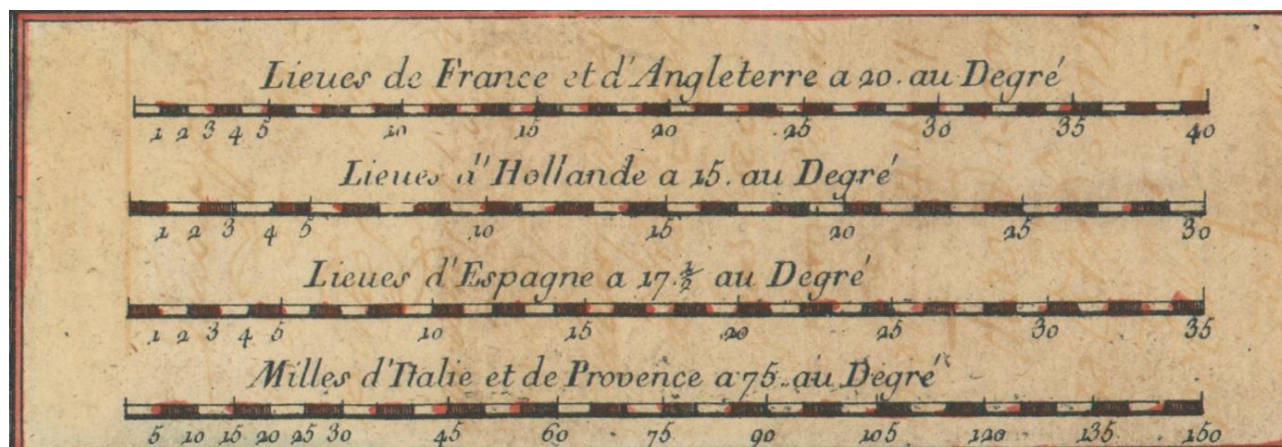 Lieues de France et d'Angleterre a 20. au Degré
1 2 3 4 5 10 15 20 25 30 35 40
Lieues d'Hollande a 15. au Degré
1 2 3 4 5 10 15 20 25 30
Lieues d'Espagne a 17.½ au Degré
1 2 3 4 5 10 15 20 25 30 35
Milles d'Italie et de Provence a 75. au Degré
5 10 15 20 25 30 45 60 75 90 105 120 135 150